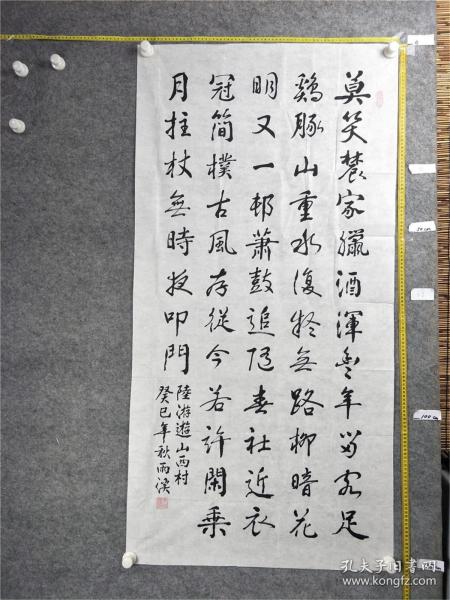 莫笑農家臘酒渾豐年留客足
鷄豚山重水復疑無路柳暗花
明又一邨蕭鼓追隨春社近衣
冠簡樸古風存從今若許閑乘
月拄杖無時夜叩門
陸游遊山西村
癸巳年秋雨溪
50cm
100cm
孔夫子旧书网
www.kongfz.com